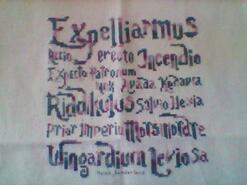 Expelliarmus
Accio erecto Incendio
Expecto Patronum
Nox Avada Kedavra
Riddikulus Salvio Hexia
Prior Imperio Morsmordre
Wingardium Leviosa